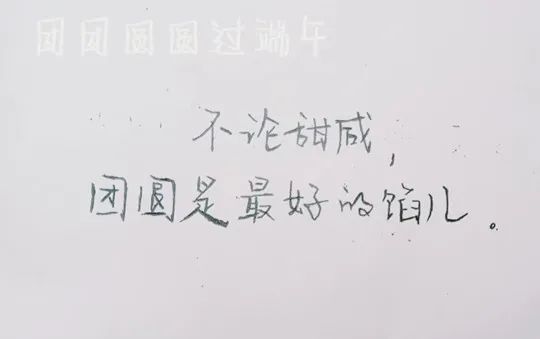 团团圆圆过端午
不论甜咸,
团圆是最好的馅儿。